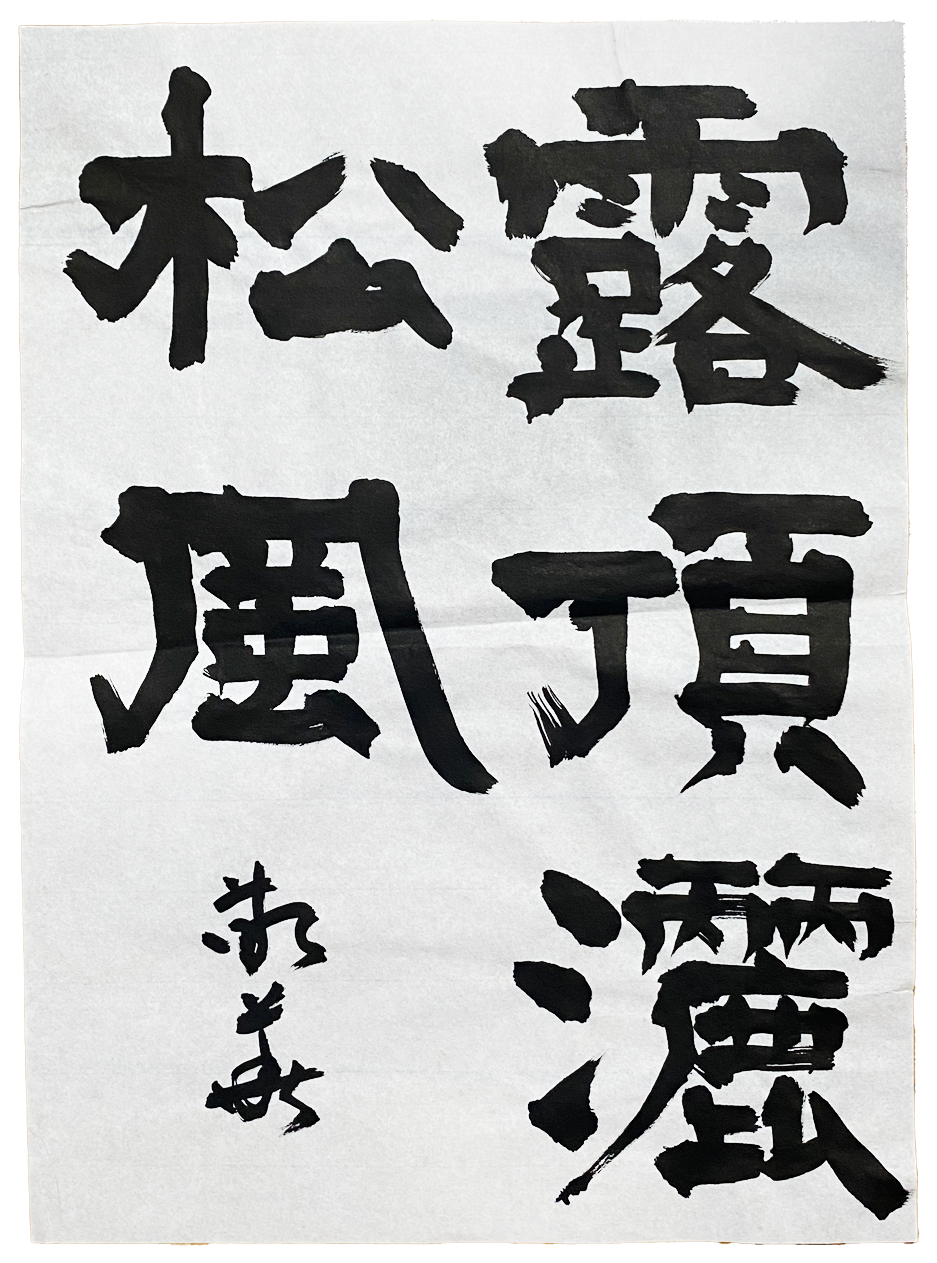 露頂灑
松風